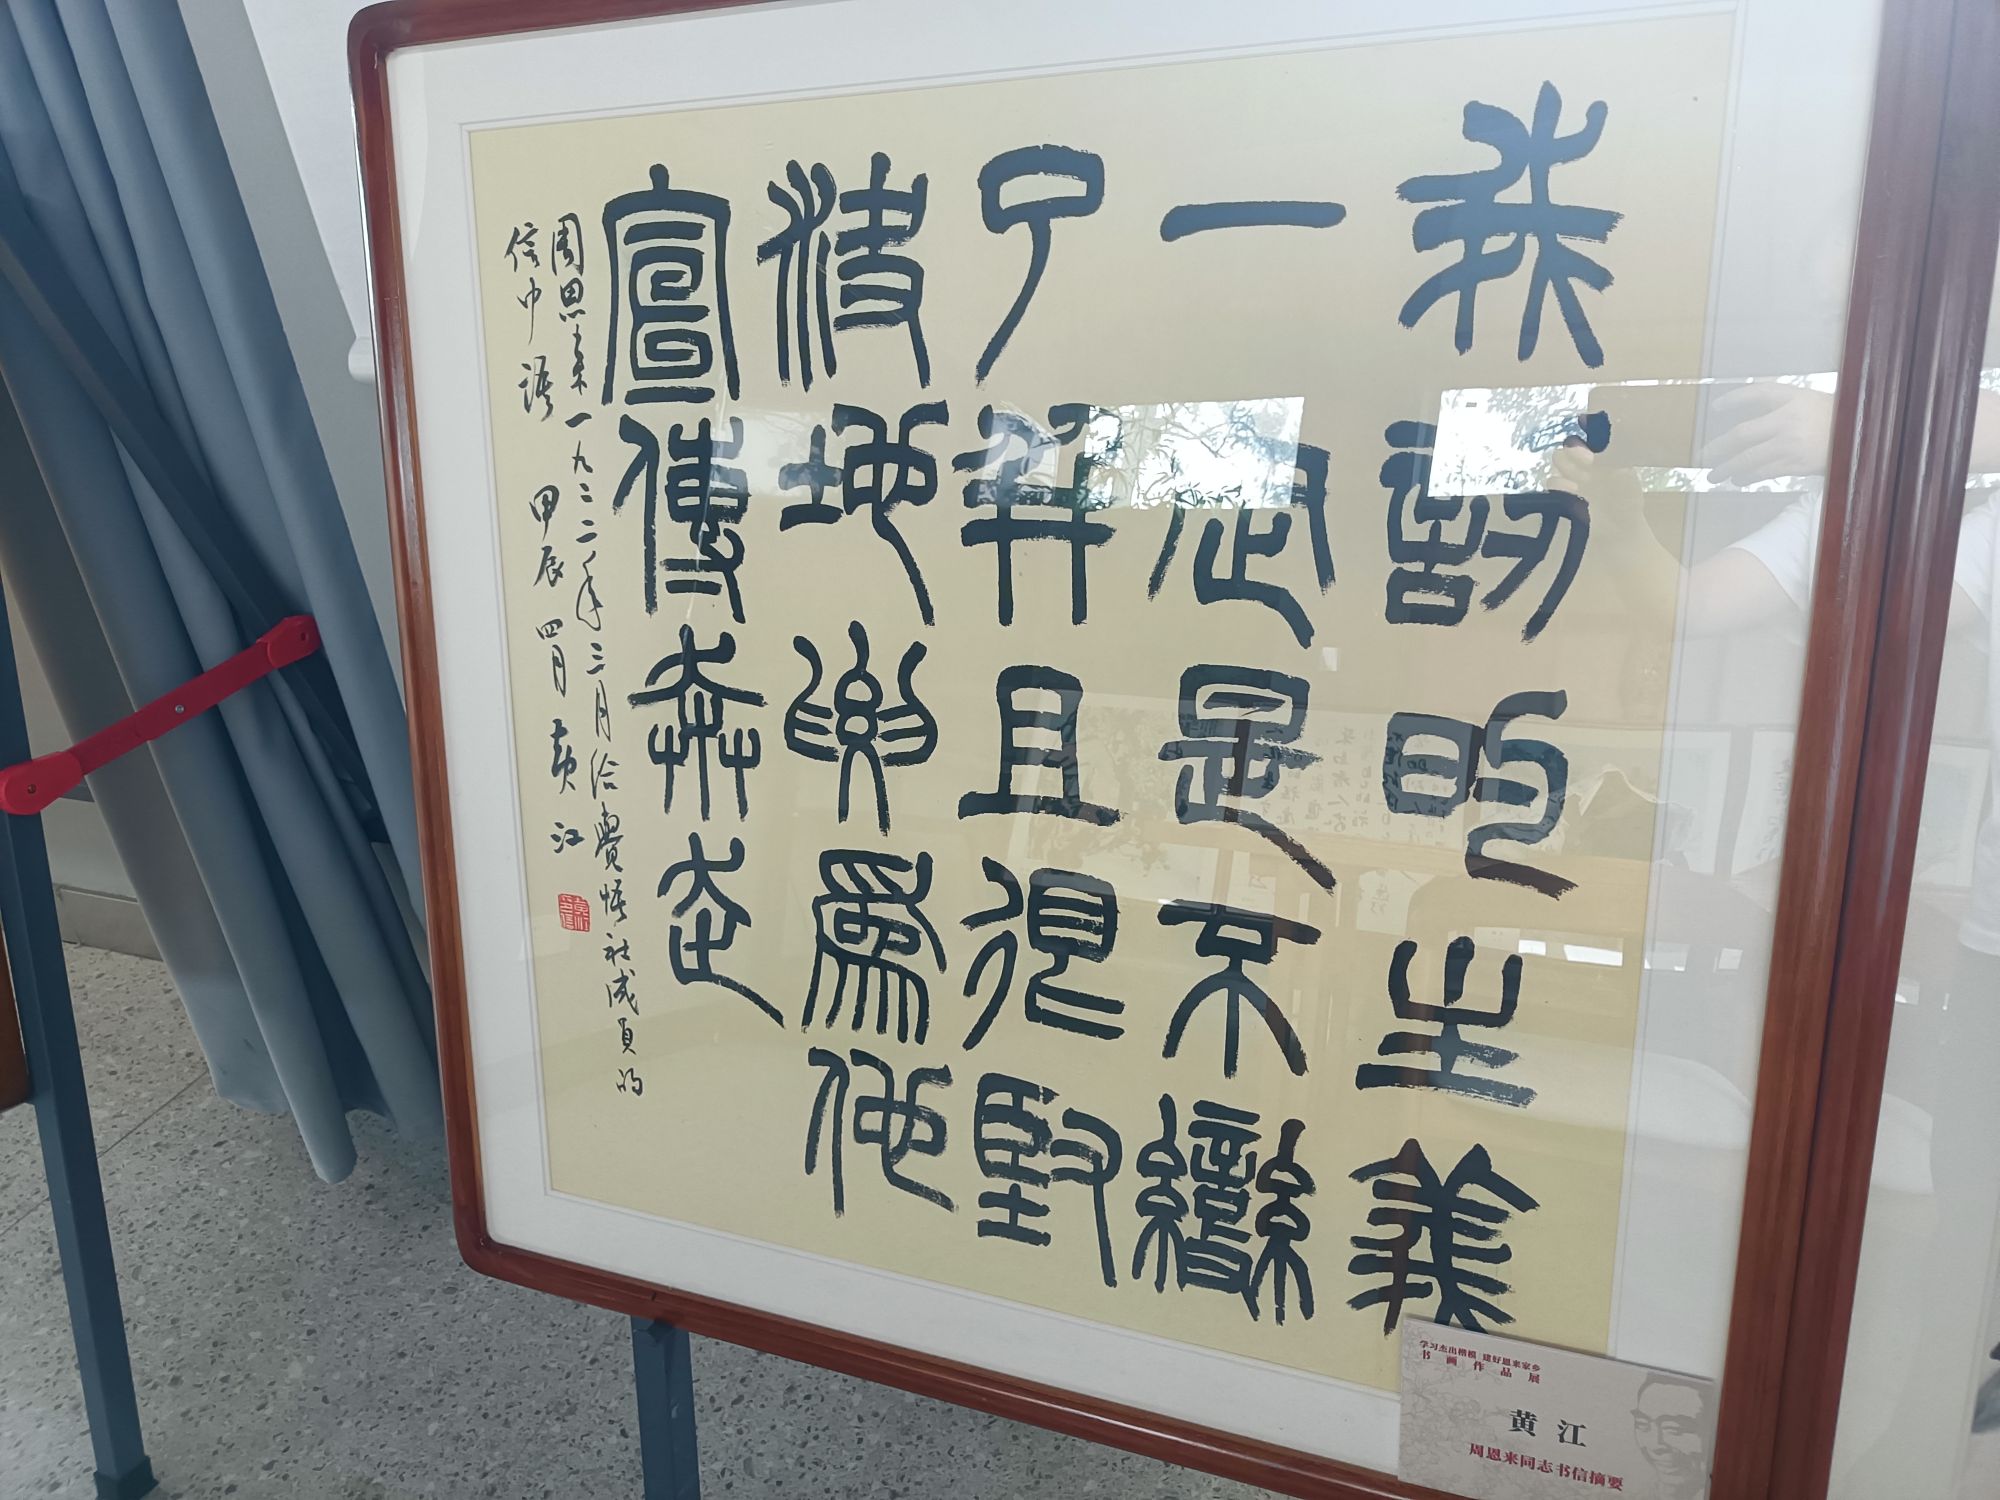 我認的主義
一定是不變
了并且很堅
決地要爲他
宣傳奔走
周恩来一九二二年三月给覺悟社成員的
信中語 甲辰四月 黄江
学习杰出楷模 建好恩来家乡
书画作品展
黄江
周恩来同志书信摘要